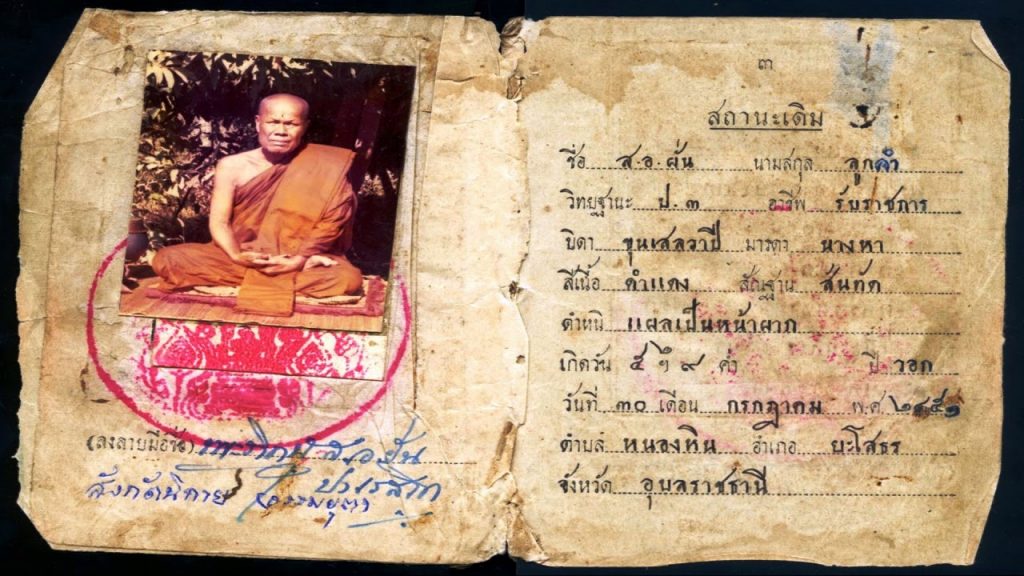 (ลงลายมือชื่อ)
สังกัดนิกาย (ธรรมยุต)
๓
สถานะเดิม
ชื่อ ส.อ. ผั่น นามสกุล ลูกคำ
วิทยฐานะ ป.๓ อาชีพ รับราชการ
บิดา ขุนเสลวาปี มารดา นางหา
สีเนื้อ ดำแดง สัณฐาน สันทัด
ตำหนิ แผลเป็นหน้าผาก
เกิดวัน ๕ ฯ ๙ ค่ำ ปี วอก
วันที่ ๓๐ เดือน กรกฎาคม พ.ศ. ๒๔๕๑
ตำบล หนองหิน อำเภอ ยะโสธร
จังหวัด อุบลราชธานี